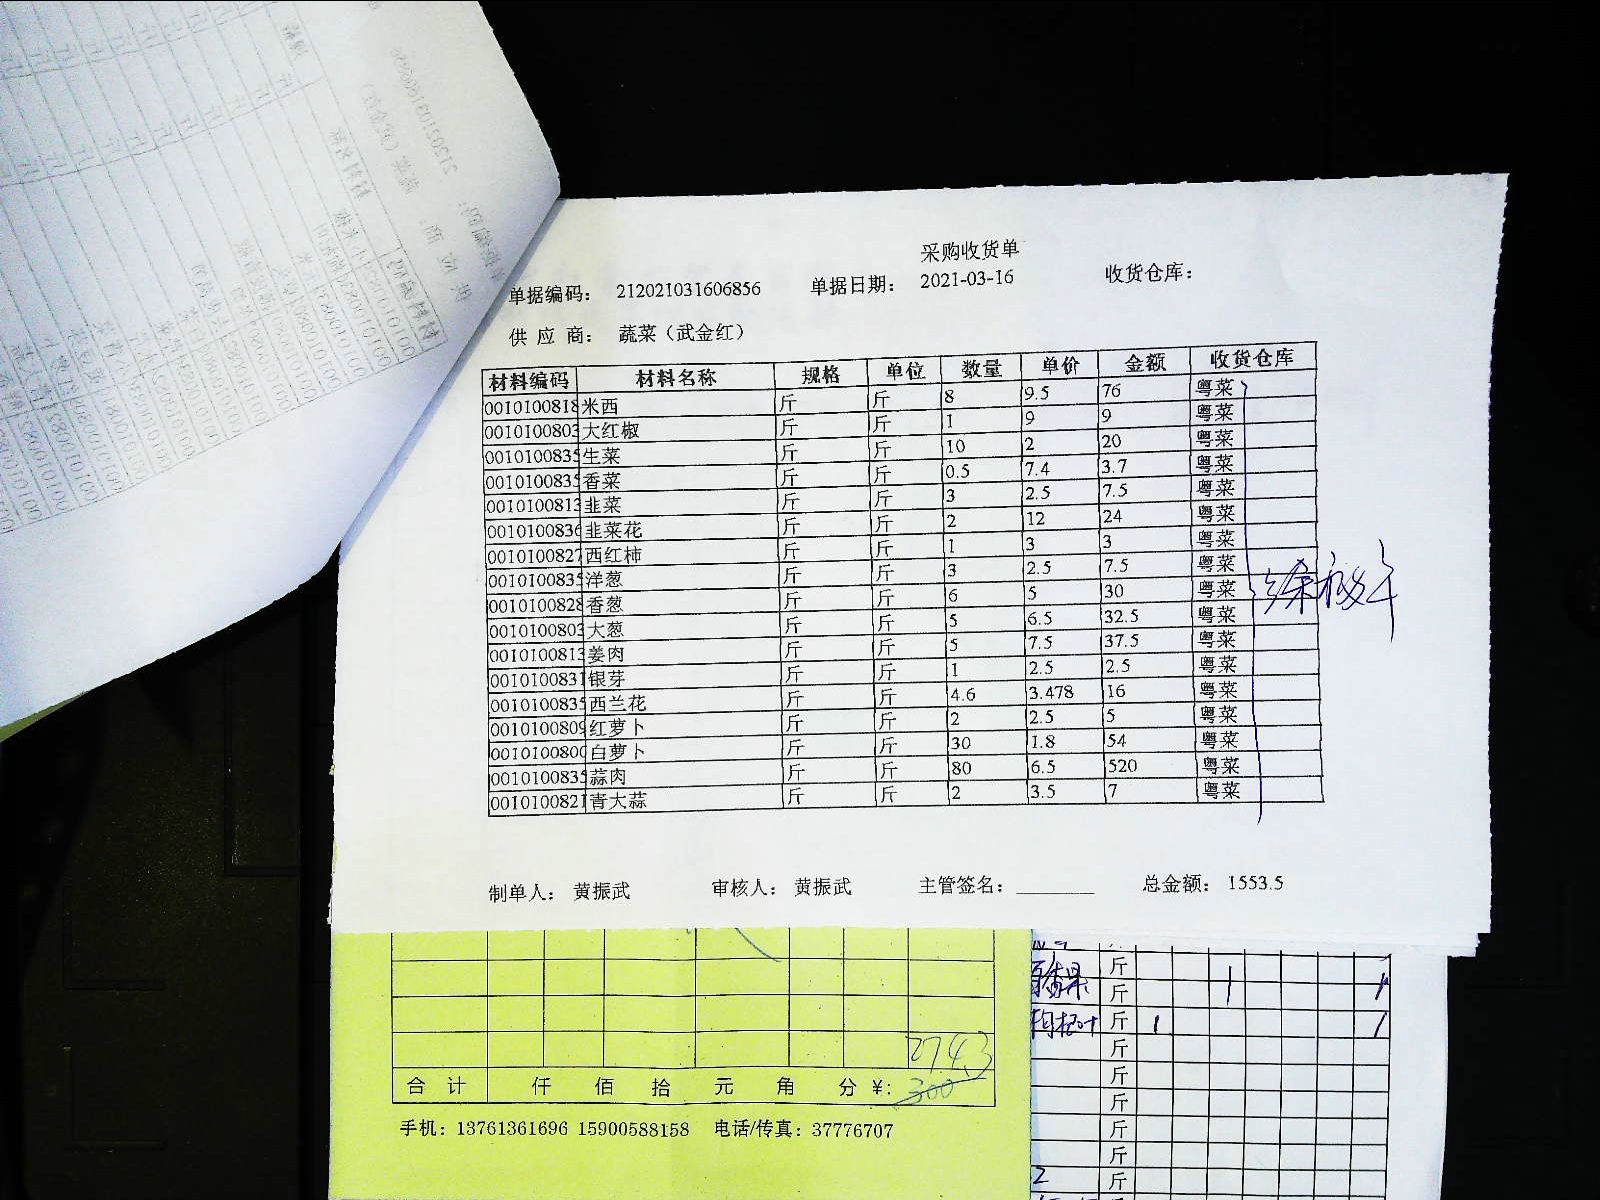 采购收货单
单据编码： 212021031606856 单据日期： 2021-03-16 收货仓库：
供 应 商： 蔬菜（武金红）
材料编码 材料名称 规格 单位 数量 单价 金额 收货仓库
0010100818 米西 斤 斤 8 9.5 76 粤菜
0010100803 大红椒 斤 斤 1 9 9 粤菜
0010100835 生菜 斤 斤 10 2 20 粤菜
0010100835 香菜 斤 斤 0.5 7.4 3.7 粤菜
0010100813 韭菜 斤 斤 3 2.5 7.5 粤菜
0010100836 韭菜花 斤 斤 2 12 24 粤菜
0010100827 西红柿 斤 斤 1 3 3 粤菜
0010100835 洋葱 斤 斤 3 2.5 7.5 粤菜
0010100828 香葱 斤 斤 6 5 30 粤菜
0010100803 大葱 斤 斤 5 6.5 32.5 粤菜
0010100813 姜肉 斤 斤 5 7.5 37.5 粤菜
0010100831 银芽 斤 斤 1 2.5 2.5 粤菜
0010100835 西兰花 斤 斤 4.6 3.478 16 粤菜
0010100809 红萝卜 斤 斤 2 2.5 5 粤菜
0010100800 白萝卜 斤 斤 30 1.8 54 粤菜
0010100835 蒜肉 斤 斤 80 6.5 520 粤菜
0010100821 青大蒜 斤 斤 2 3.5 7 粤菜
制单人： 黄振武 审核人： 黄振武 主管签名： 总金额： 1553.5
斤
斤 1 1
斤 1 1
斤
斤
斤
斤
斤
2 斤
2743
合 计 仟 佰 拾 元 角 分 ￥: 300
手机：13761361696 15900588158 电话/传真：37776707